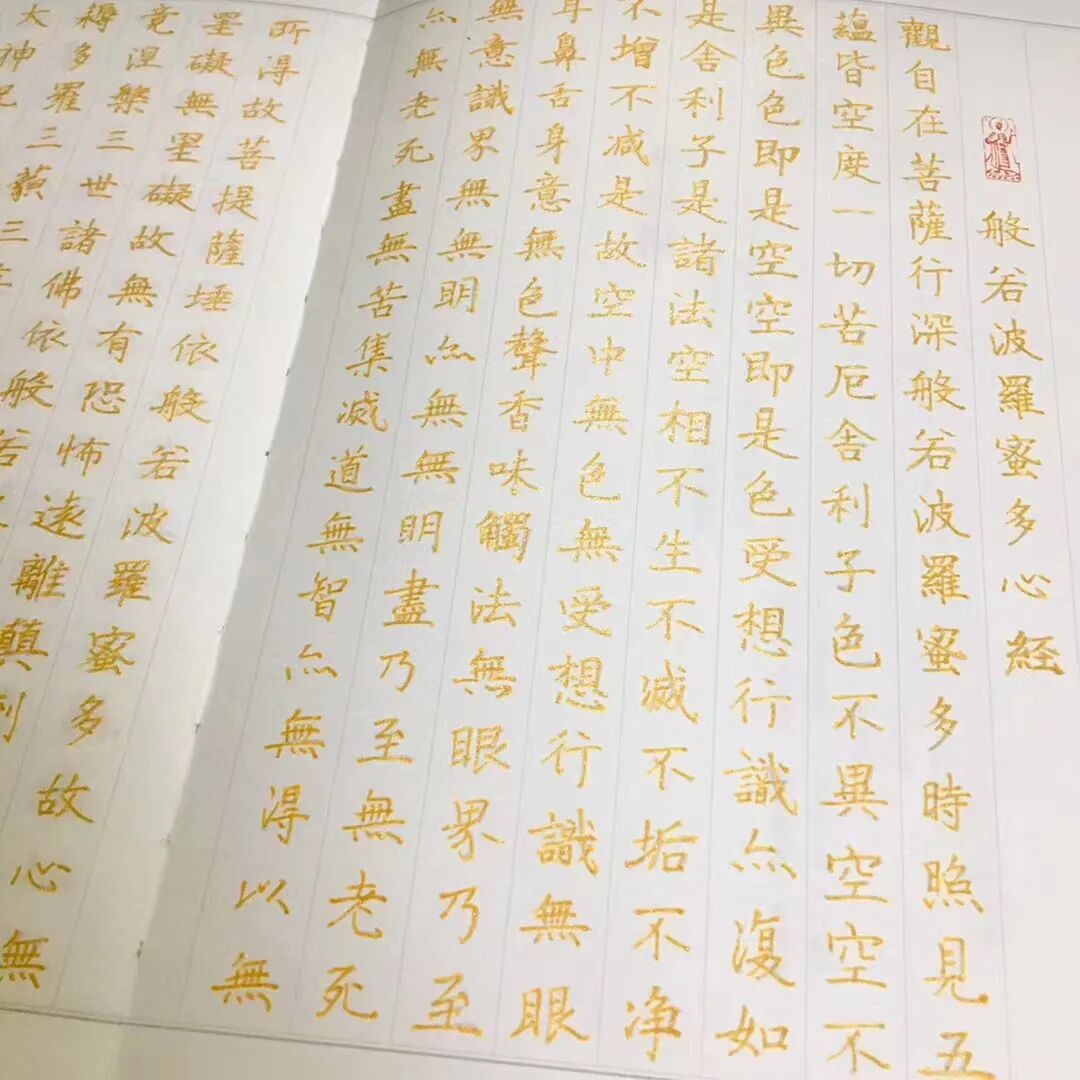 般若波羅蜜多心経
觀自在菩薩行深般若波羅蜜多時照見五
蘊皆空度一切苦厄舍利子色不異空空不
異色色即是空空即是色受想行識亦復如
是舍利子是諸法空相不生不滅不垢不净
不增不减是故空中無色無受想行識無眼
耳鼻舌身意無色聲香味觸法無眼界乃至
無意識界無無明亦無無明盡乃至無老死
亦無老死盡無苦集滅道無智亦無得以無
所得故菩提薩埵依般若波羅蜜多故心無
罣礙無罣礙故無有恐怖遠離顛倒
竟涅槃三世諸佛依般若
耨多羅三藐三
大神咒